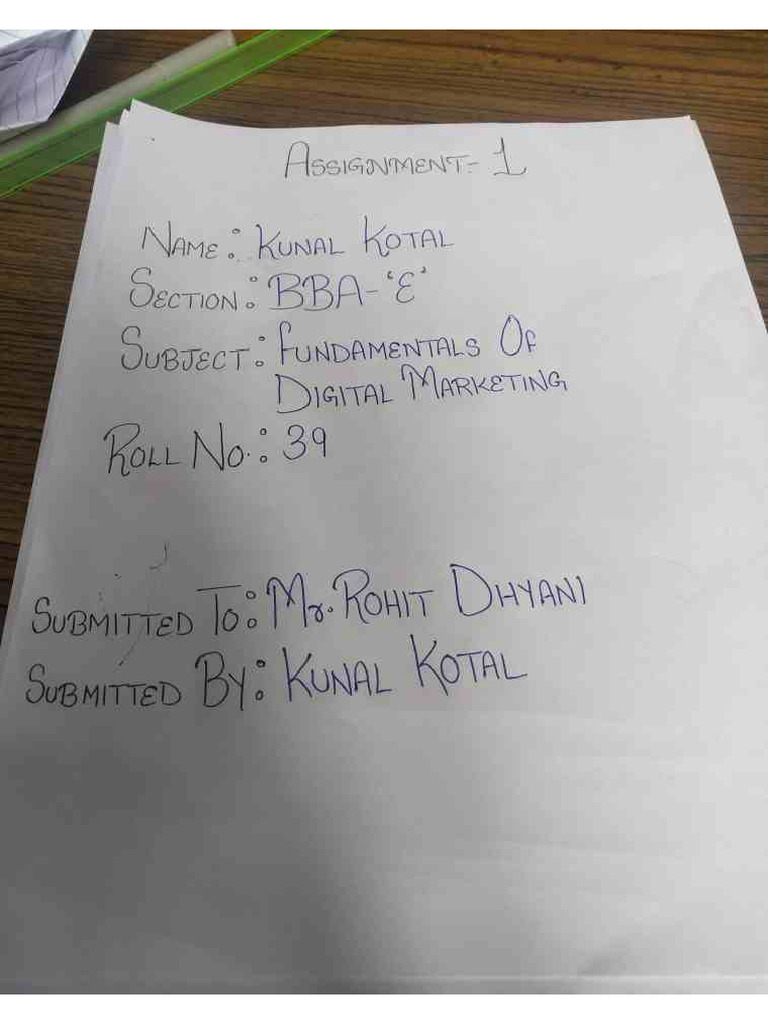 ASSIGNMENT-1
NAME: KUNAL KOTAL
SECTION: BBA-'E'
SUBJECT: FUNDAMENTALS OF
DIGITAL MARKETING
ROLL NO.: 39
SUBMITTED TO: Mr. ROHIT DHYANI
SUBMITTED BY: KUNAL KOTAL